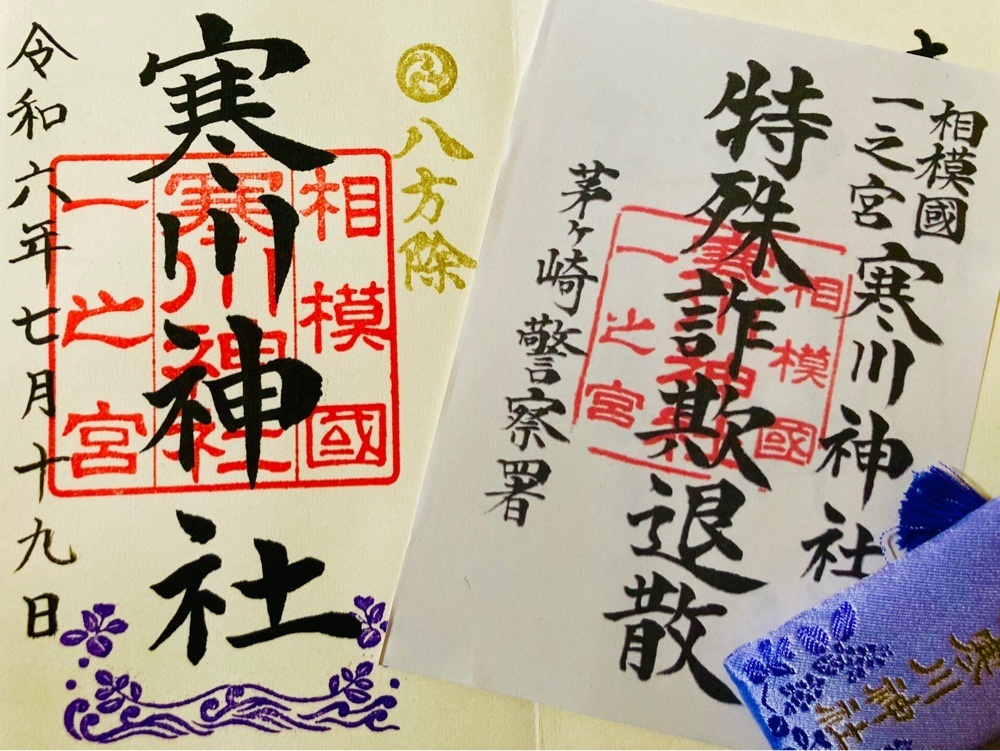 八方除
寒川神社
相模國
寒川神社
一之宮
令和六年七月十九日
相模國
一之宮
寒川神社
特殊詐欺退散
相模國
寒川神社
一之宮
茅ヶ崎警察署
寒川神社